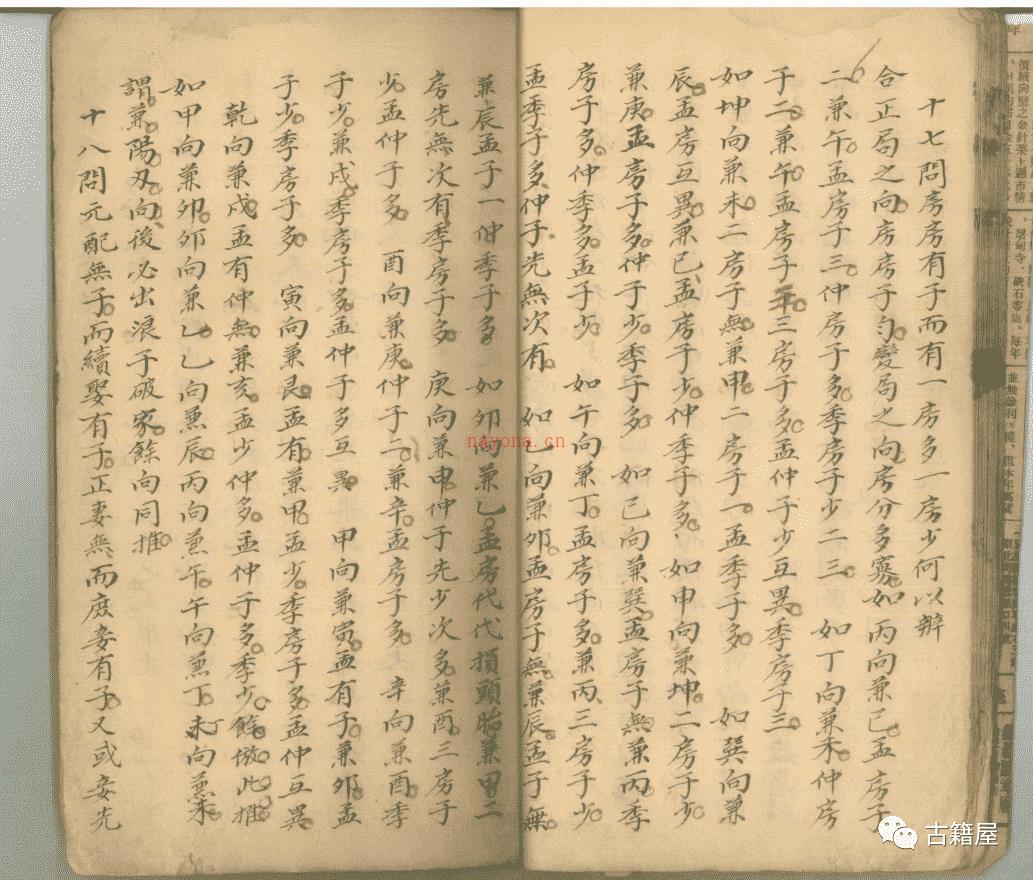 十七問房房有子而有一房多一房少何以辨
合正局之向房房子勻變局之向房分多寡如丙向兼巳孟房子
二兼午孟房子三仲房子多季房子少二三 如丁向兼未仲房
子二兼午孟房子三房子多孟仲子少互異季房子三
如坤向兼未二房子無兼申二房子一孟季子多 如巽向兼
辰孟房互異兼巳孟房子少仲季子多 如申向兼坤二房子少
兼庚孟房子多仲子少季子多 如巳向兼巽孟房子無兼丙季
房子多仲季多孟子少 如午向兼丁孟房子多兼丙三房子少
孟季子多仲子先無次有 如乙向兼卯孟房子無兼辰孟子無
兼辰孟子一仲季子多 如卯向兼乙孟房代代損頭胎兼甲二
房先無次有季房子多 庚向兼申仲子先少次多兼酉三房子
少孟仲子多 酉向兼庚仲子二兼辛孟房子多 辛向兼酉季
子少兼戌季房子多孟仲子多互異 甲向兼寅孟有子兼卯孟
子少季房子多 寅向兼艮孟有兼甲孟少季房子多孟仲互異
乾向兼戌孟有仲無兼亥孟少仲多孟仲子多季少餘倣此推
如甲向兼卯卯向兼乙乙向兼辰丙向兼午午向兼丁未向兼未
謂兼陽刃向後必出浪子破家餘向同推
十八問元配無子而續娶有子正妻無而庶妾有子又或妾先
nayona.cn
古籍屋